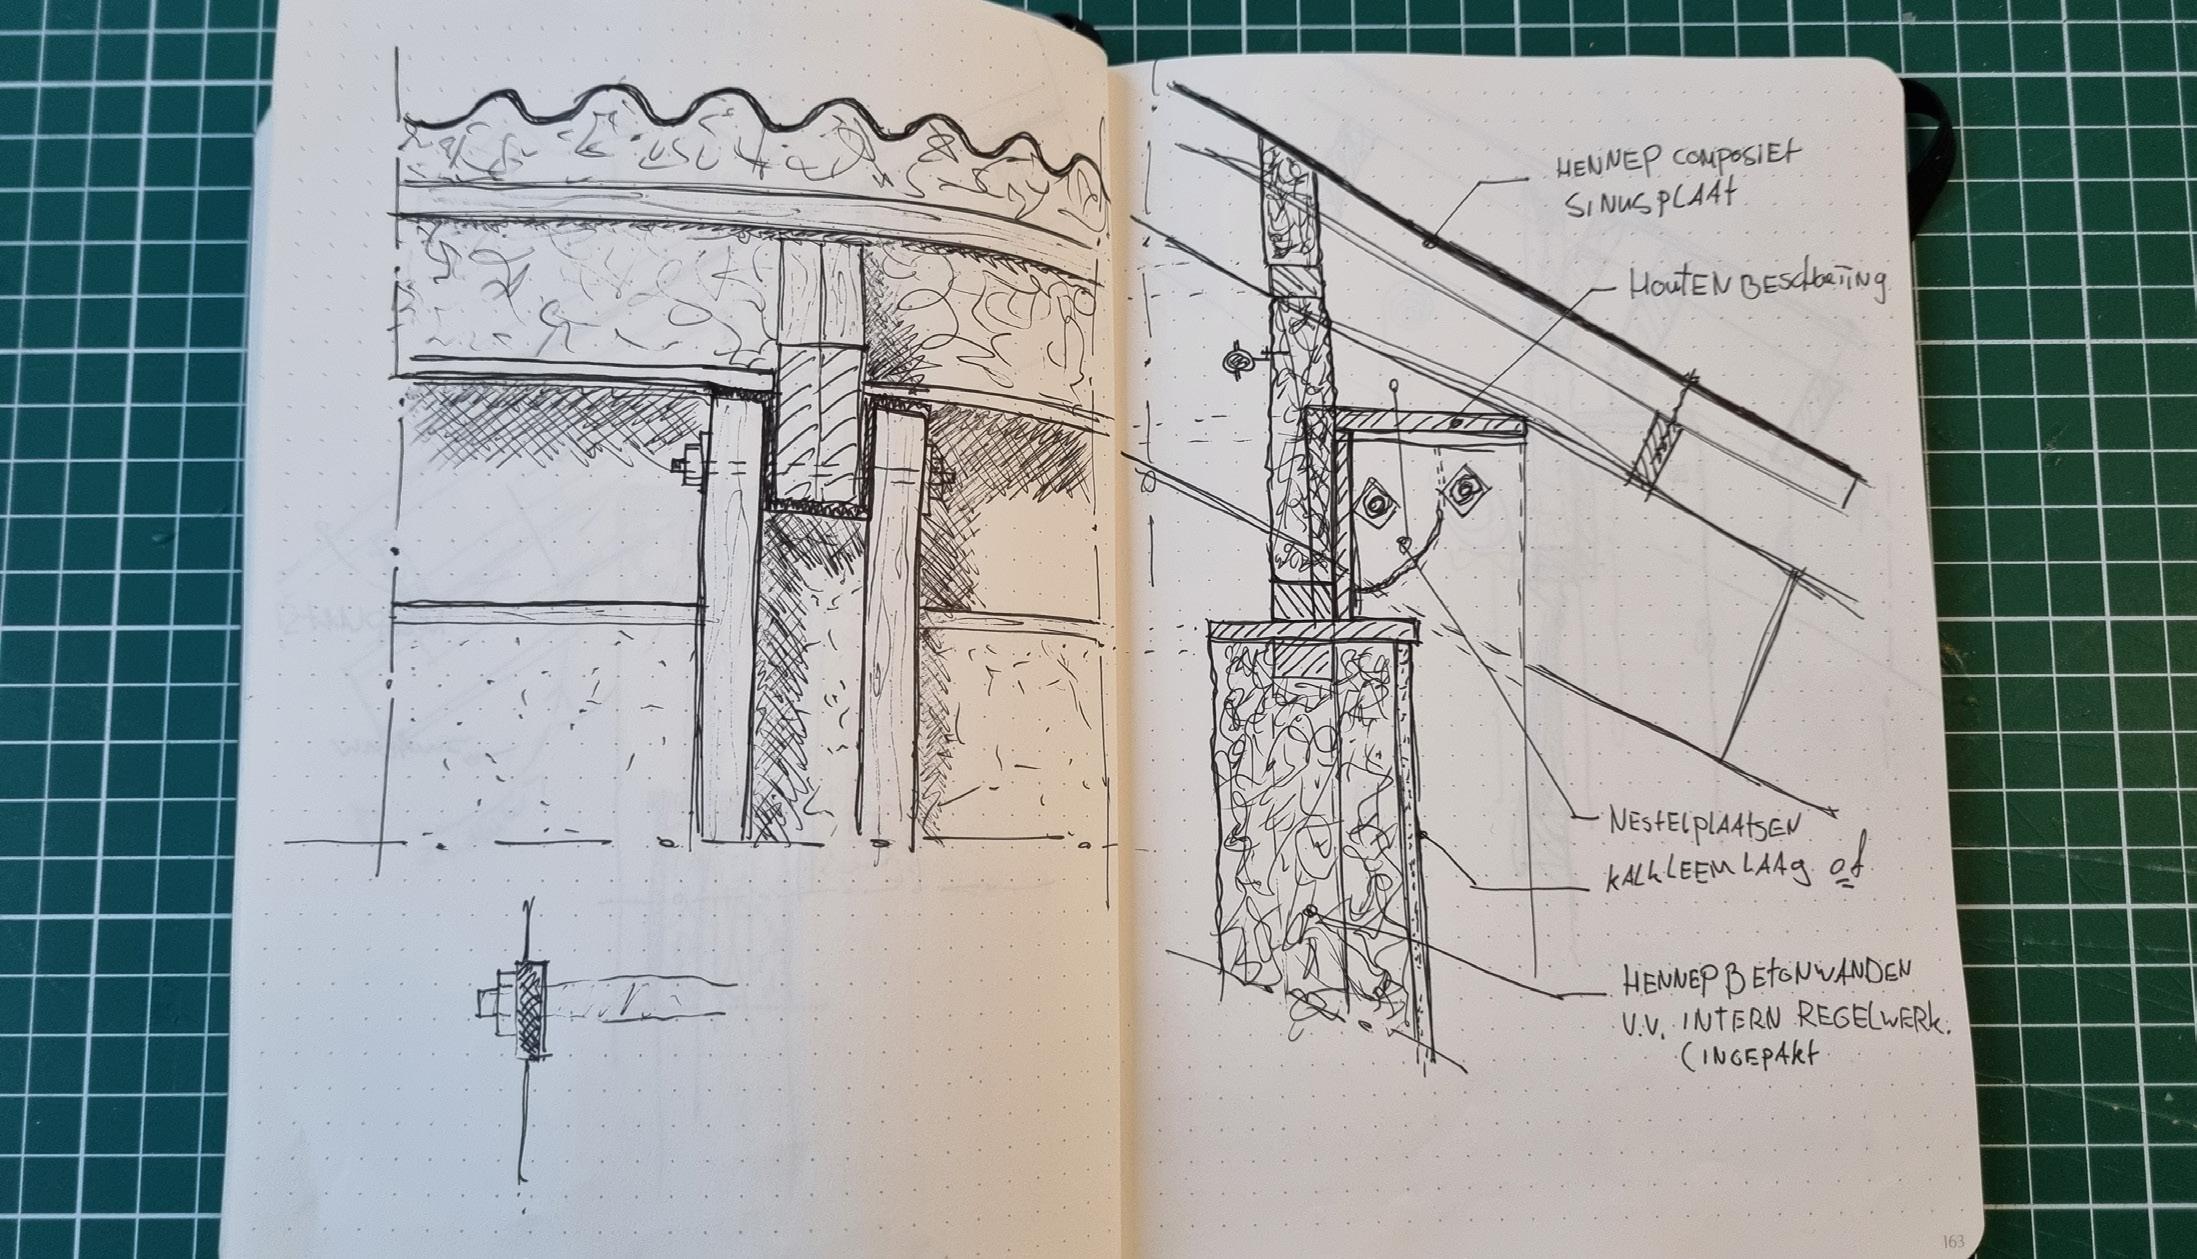 HENNEP COMPOSIET
SINUSPLAAT
HOUTEN BESCHOEIING
NESTELPLAATSEN
KALKLEEM LAAG of
HENNEP BETONWANDEN
V.V. INTERN REGELWERK.
(INGEPAKT
163